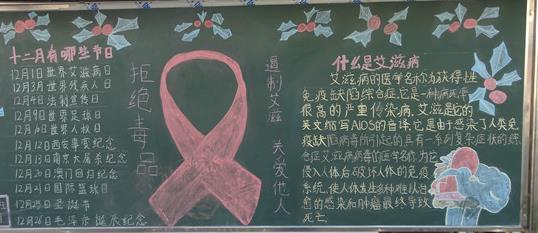 十二月有哪些节日
12月1日世界艾滋病日
12月3日世界残疾人日
12月4日法制宣传日
12月9日世界足球日
12月10日世界人权日
12月12日西安事变纪念
12月13日南京大屠杀纪念
12月20日澳门回归纪念
12月21日国际篮球日
12月25日圣诞节
12月26日毛泽东诞辰纪念
拒绝毒品
遏制艾滋 关爱他人
什么是艾滋病
艾滋病的医学名称为获得性
免疫缺陷综合症,它是一种病死率
很高的严重传染病.艾滋是它的
英文缩写AIDS的音译,它是由于感染了人类免
疫缺陷病毒所引起的具有一系列复杂症状的综
合症艾滋病病毒的医学名称为它
侵入人体后破坏人体的免疫
系统,使人体发生多种难以治
愈的感染和肿瘤最终导致
死亡.